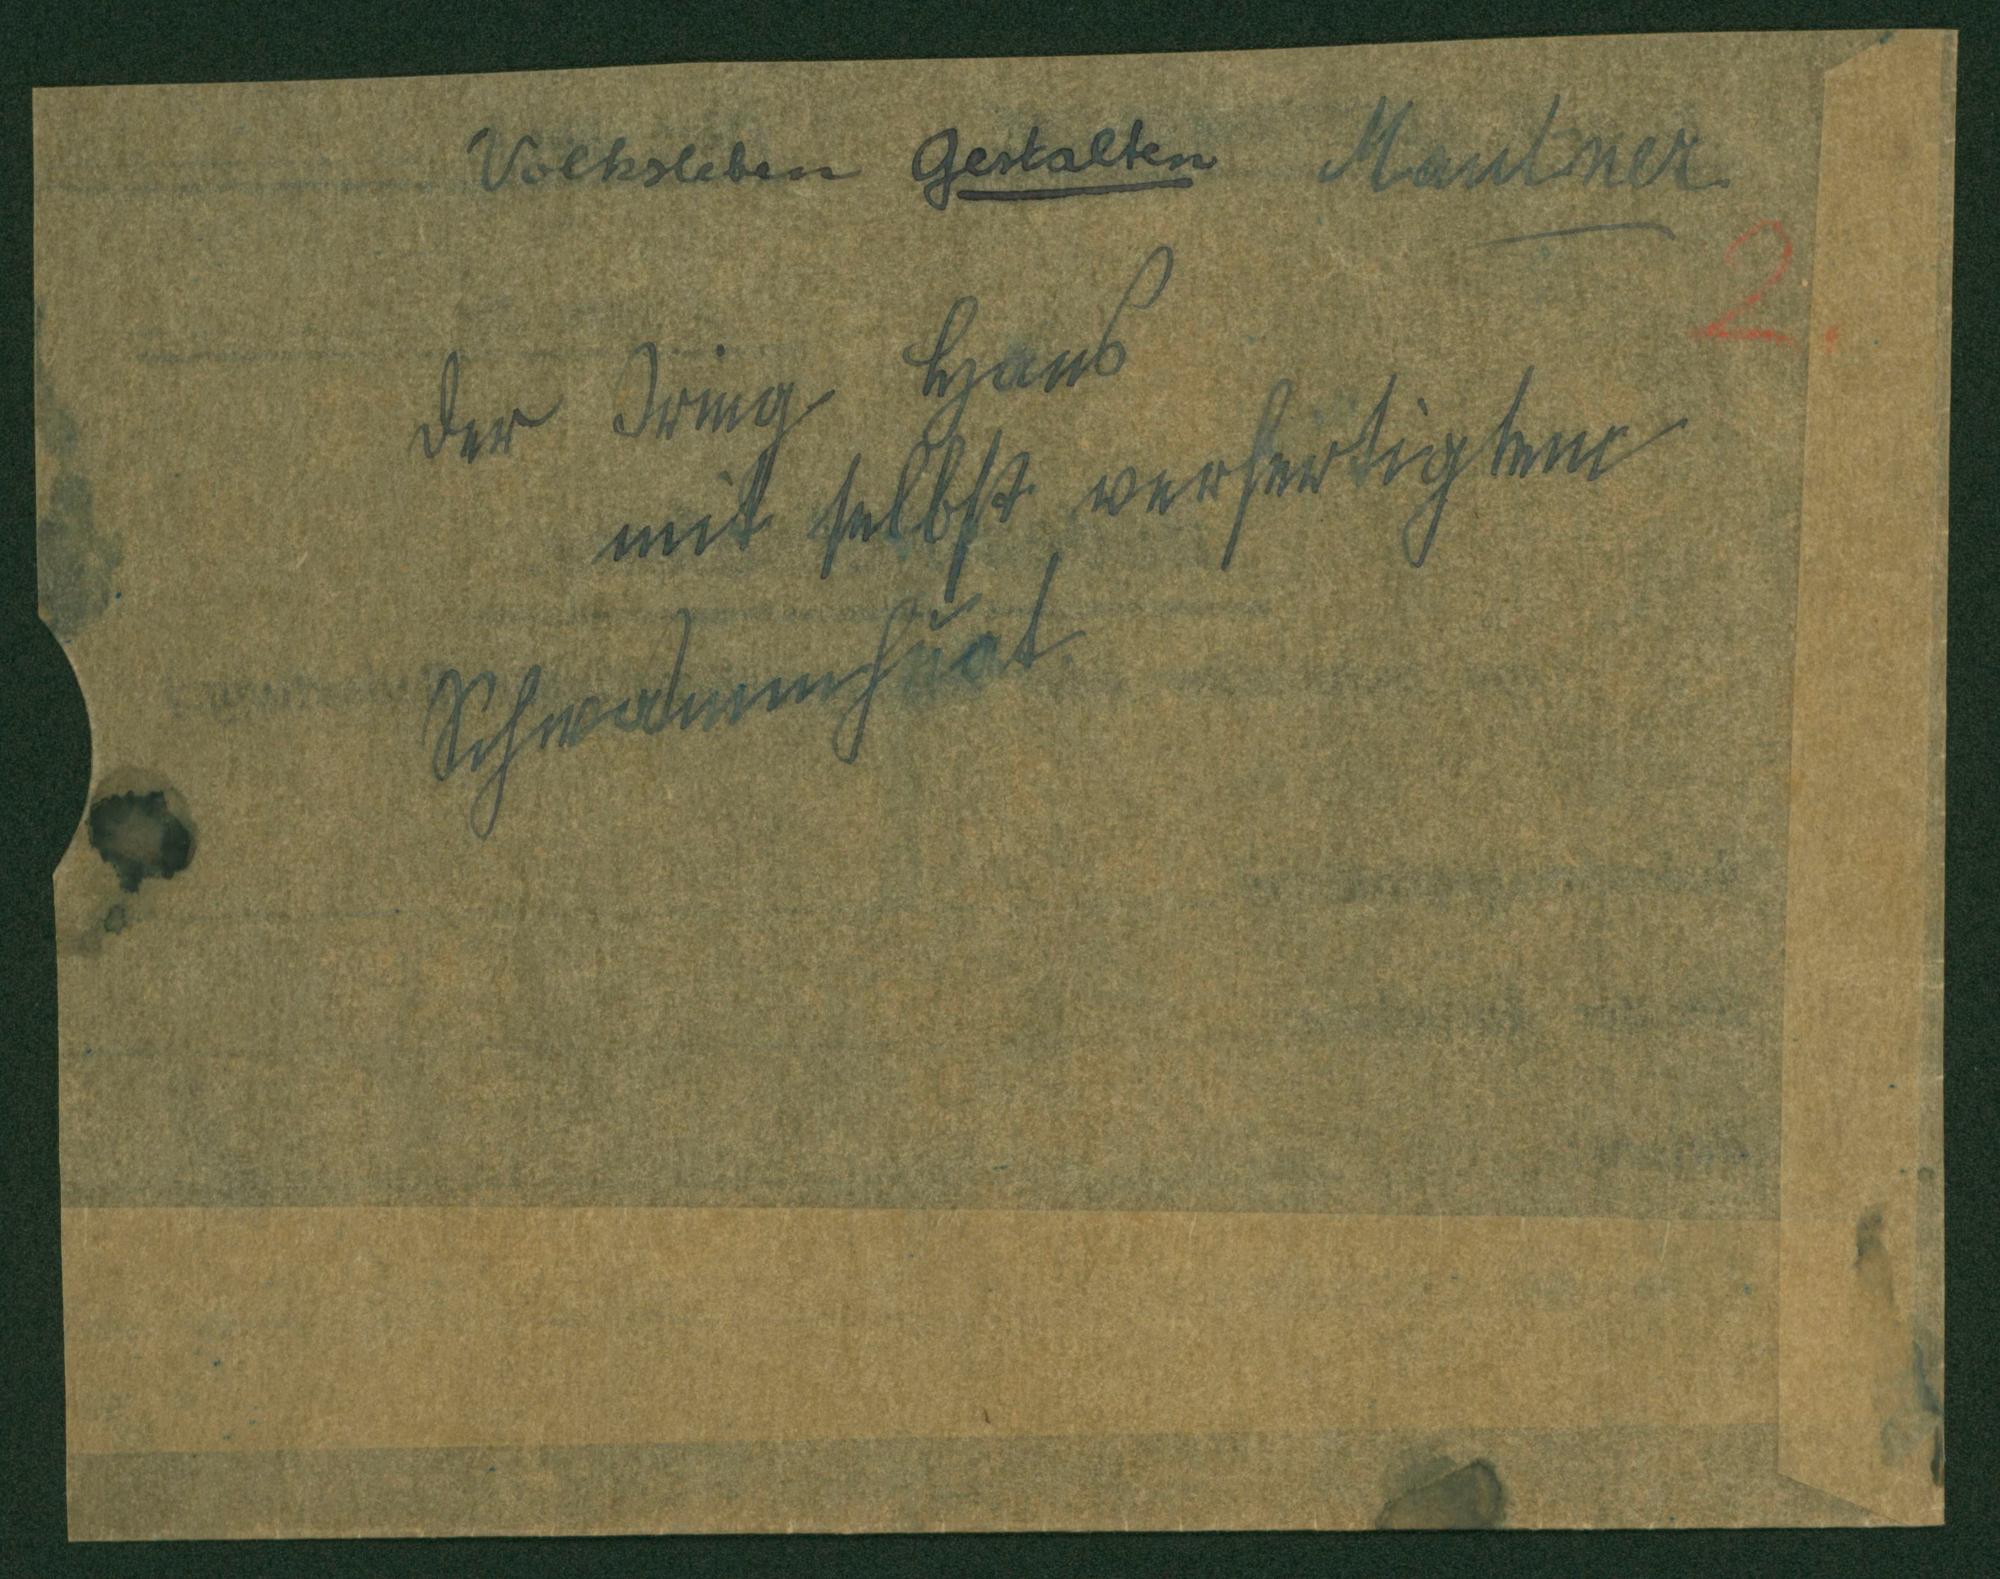 Volksleben Gestalten Mautner
2.
Der Iring Hans
mit selbst verfertigtem
Schwammhuat